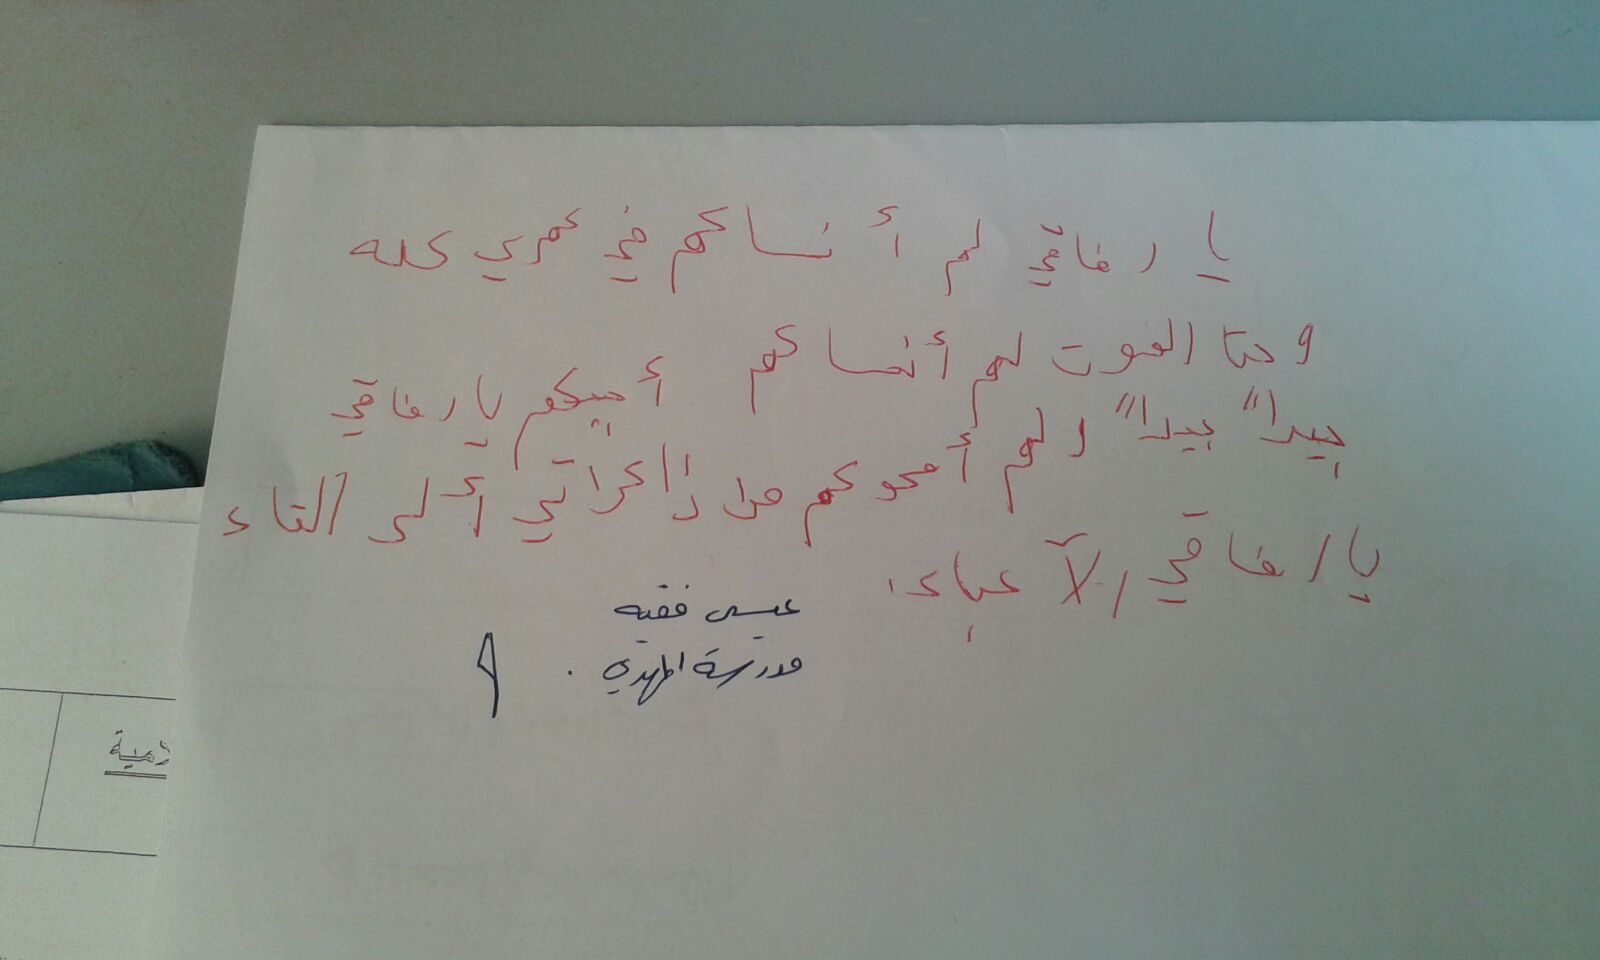 يا رفاقي لم أنساكم في عمري كله
وحتا الموت لم أنساكم أحبكم يا رفاقي
جيداً جيداً ولم أمحوكم من ذاكراتي ألى القاء
يا رفاقي الآعباء
عيسى فقيه
مدرسة المهدي